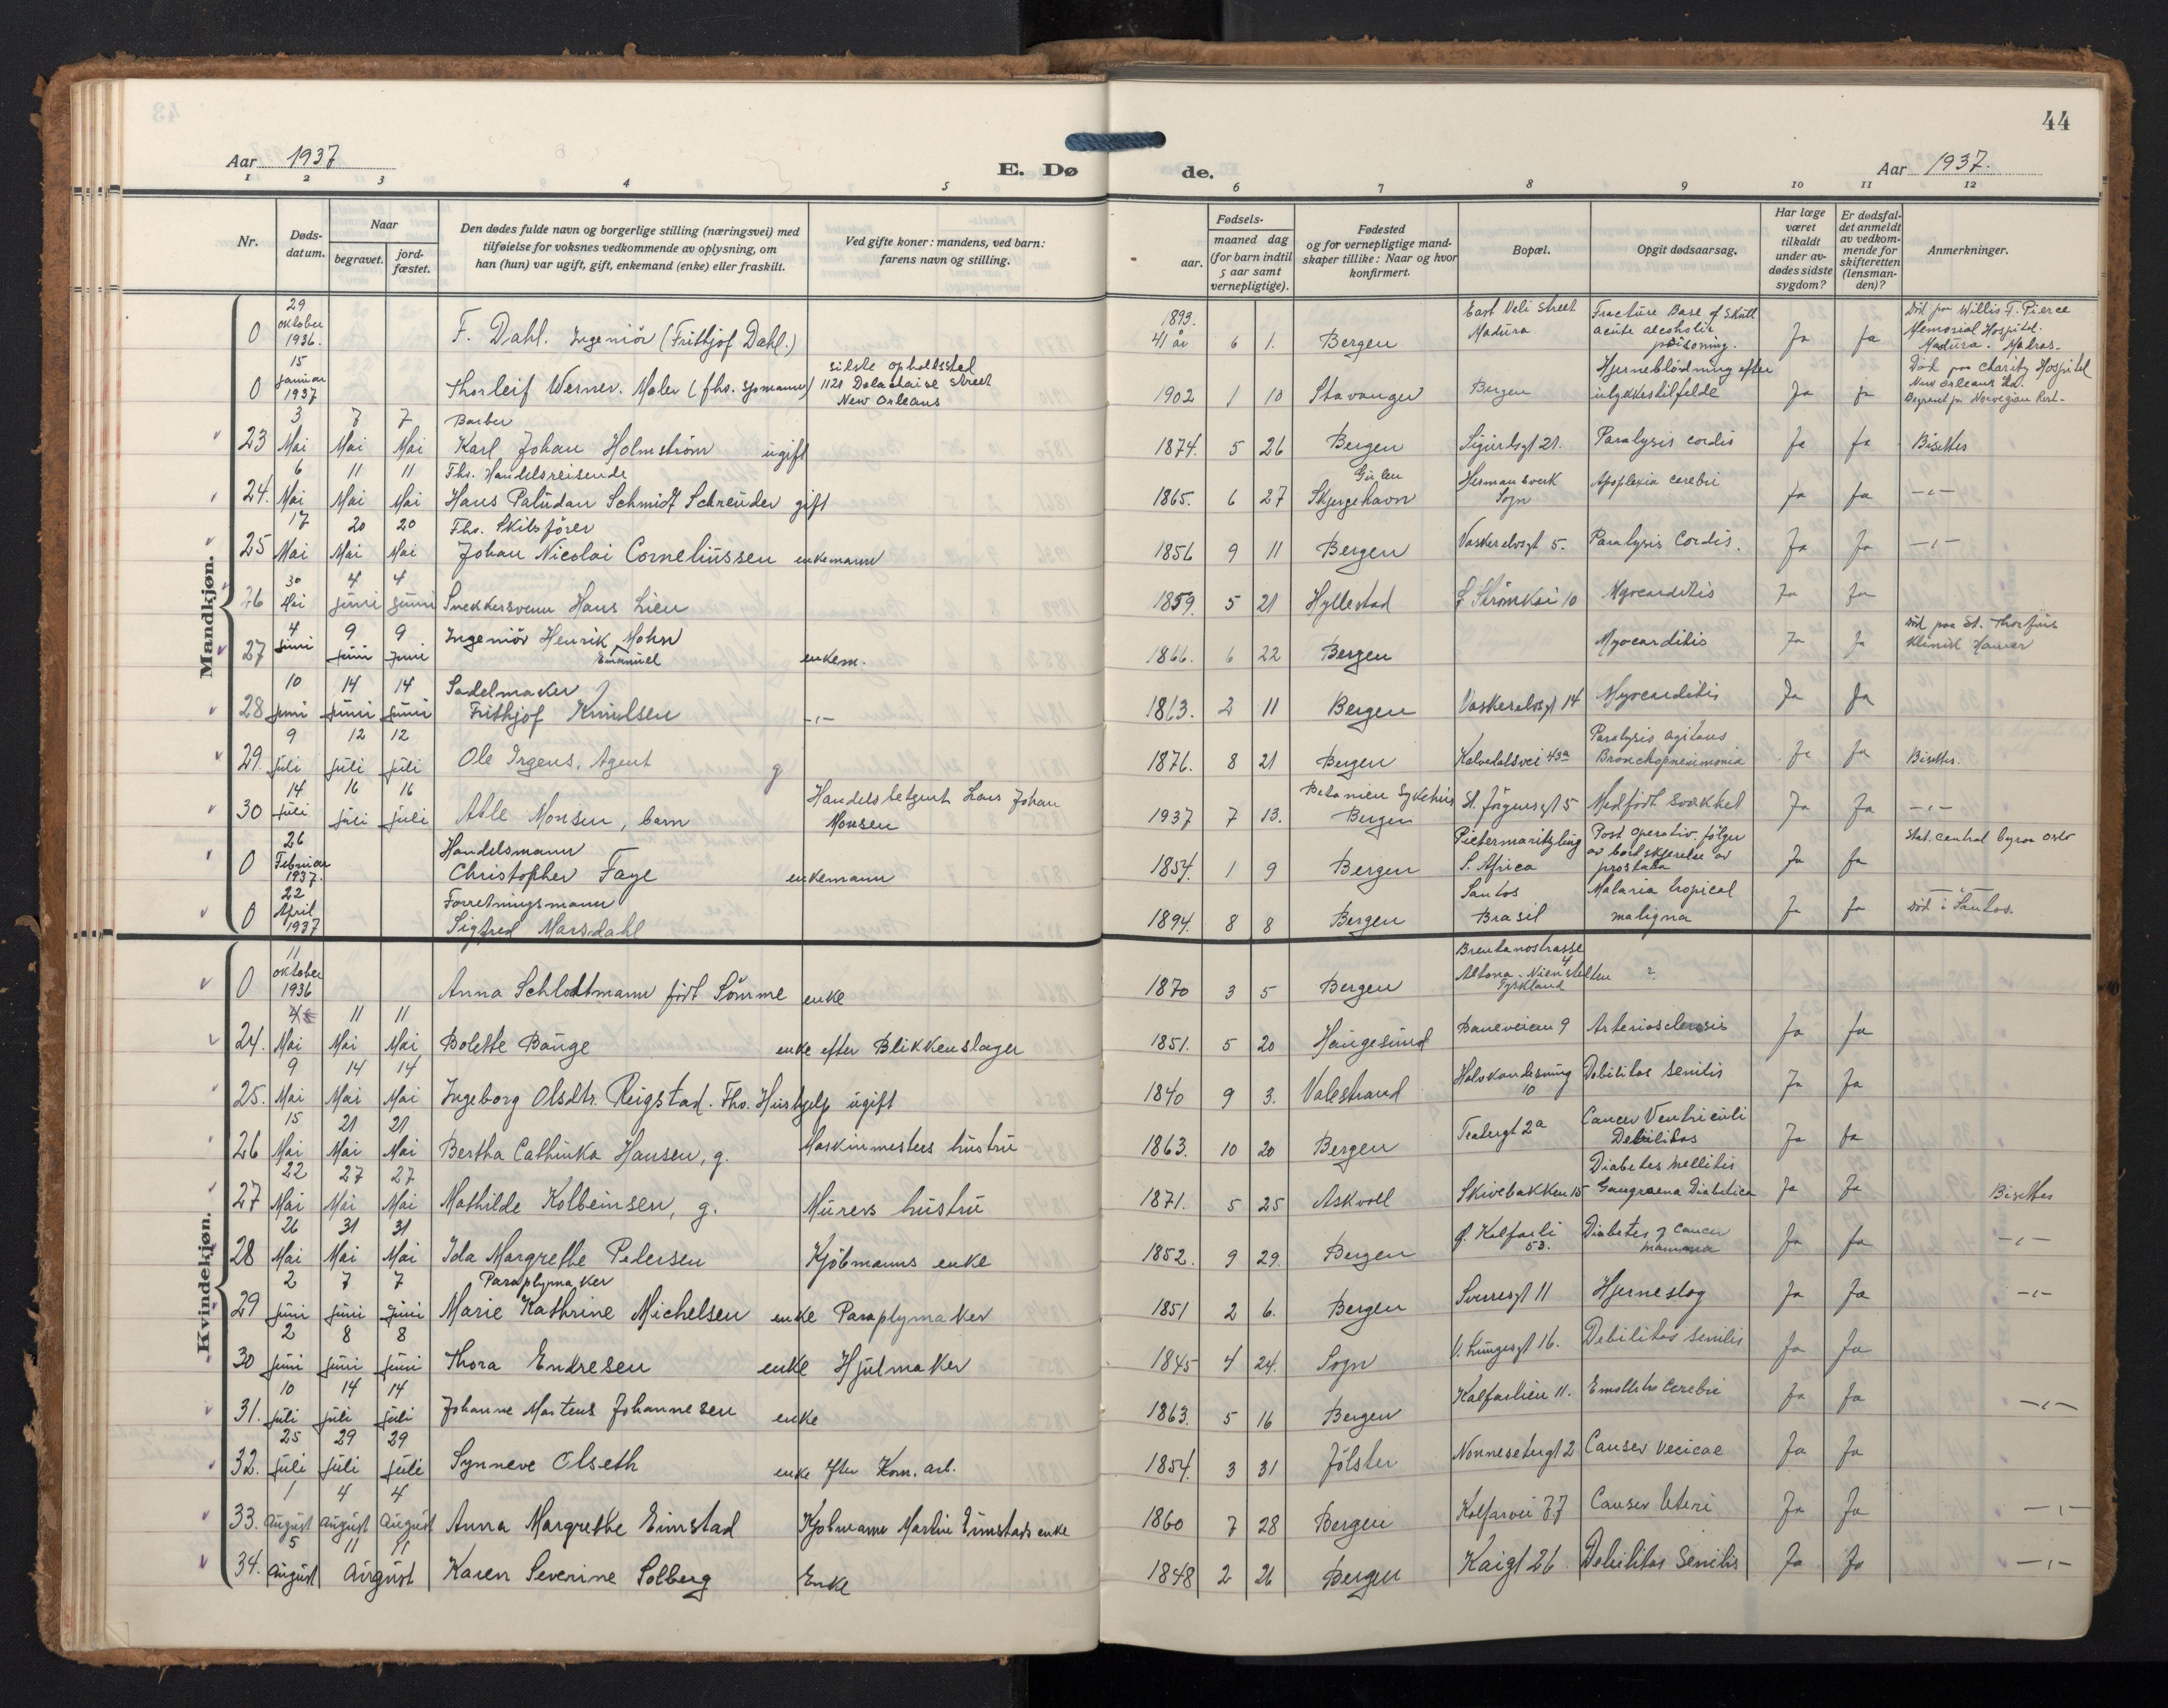 44
Aar 1937
E. Dø de.
Aar 1937.
1 2 3 4 5 6 7 8 9 10 11 12
Nr.
Døds-datum.
Naar
begravet.
jord-fæstet.
Den dødes fulde navn og borgerlige stilling (næringsvei) med
tilføielse for voksnes vedkommende av oplysning, om
han (hun) var ugift, gift, enkemand (enke) eller fraskilt.
Ved gifte koner: mandens, ved barn:
farens navn og stilling.
Fødsels-
aar.
maaned dag
(for barn indtil
5 aar samt
vernepligtige).
Fødested
og for vernepligtige mand-
skaper tillike: Naar og hvor
konfirmert.
Bopæl.
Opgit dødsaarsag.
Har læge
været
tilkaldt
under av-
dødes sidste
sygdom?
Er dødsfal-
det anmeldt
av vedkom-
mende for
skifteretten
(lensman-
den)?
Anmerkninger.
Mandkjøn.
0 29 oktober 1936. F. Dahl. Ingeniør (Frithjof Dahl.) 1893. 41 år 6 1. Bergen East Veli Street Madura Fracture Base of Skull acute alcoholic poisoning. Ja Ja Død paa Willis F. Pierce Memorial Hospital. Madura. Madras.
0 15 januar 1937 Thorleif Werner. Maler (fhv. sjømann) siste opholdssted 1121 Delachaise Street New Orleans 1902 1 10 Stavanger Bergen Hjerneblødning efter ulykkestilfelde Ja Ja Død paa Charity Hospital New Orleans La.
23 3 Mai 7 Mai 7 Mai Barber Karl Johan Holmstrøm ugift 1874. 5 26 Bergen Sigurdsgt 21. Paralysis cordis Ja Ja Bisettes
24. 6 Mai 11 Mai 11 Mai Fhv. Handelsreisende Hans Paludan Schmidt Schreuder gift 1865. 6 27 Gulen Skjergehavn Hermansverk Sogn Apoplexia cerebri Ja Ja -"-
25 17 Mai 20 Mai 20 Mai Fhv. Skibsfører Johan Nicolai Corneliussen enkemann 1856 9 11 Bergen Vaskerelvsgt 5. Paralysis Cordis. Ja Ja -"-
26 30 Mai 4 juni 4 juni Snekkersvenn Hans Lien 1859. 5 21 Hyllestad S. Strømkai 10 Myocarditis Ja Ja
27 4 juni 9 juni 9 juni Ingeniør Henrik Emanuel Mohn enkem. 1866. 6 22 Bergen Myocarditis Ja Ja Død paa St. Klinik Hamar
28 10 juni 14 juni 14 juni Sadelmaker Frithjof Knudsen -"- 1863. 2 11 Bergen Vaskerelvsgt 14 Myocarditis Ja Ja
29. 9 juli 12 juli 12 juli Ole Irgens, Agent g 1876. 8 21 Bergen Kalvedalsvei 43a Paralysis agitans Bronchopneumonia Ja Ja Bisettes.
30 14 juli 16 juli 16 juli Atle Monsen, barn Handelsbetjent Lars Johan Monsen 1937 7 13. Betanien Sykehus Bergen St. Jørgensgt 5 Medfødt svakhet Ja Ja -"-
0 26 Februar 1937. Handelsmann Christopher Faye enkemann 1854. 1 9 Bergen S. Africa Post operativ. følger av bortskjerelse av prostata Ja Ja Stat. central byraa Oslo
0 22 April 1937 Forretningsmann Sigfred Marsdahl 1894. 8 8 Bergen Santos Brasil Malaria tropical maligna Ja Ja -"- Død i Santos.
Kvindekjøn.
0 11 oktober 1936 Anna Schlodtmann født Sømme enke 1870 3 5 Bergen Brentanostrasse 4 Altona. Nienstetten Tyskland ?
24. 4 Mai 11 Mai 11 Mai Bolette Bauge enke efter Blikkenslager 1851. 5 20 Haugesund Baneveien 9 Arteriosclerosis Ja Ja
25. 9 Mai 14 Mai 14 Mai Ingeborg Olsdtr. Reigstad. Fhv. Hushjelp ugift 1840 9 3. Valestrand 10 Debilitas senilis Ja Ja
26 15 Mai 21 Mai 21 Mai Bertha Cathinka Hansen, g. Maskinmesters hustru 1863. 10 20 Bergen Teatergt 2a Cancer Ventriculi Debilitas Ja Ja
27 22 Mai 27 Mai 27 Mai Mathilde Kolbeinsen, g. Murers hustru 1871. 5 25 Askvoll Skivebakken 15 Diabetes mellitis Gangraena Diabetica Ja Ja Bisettes
28 26 Mai 31 Mai 31 Mai Ida Margrethe Pedersen Kjøbmanns enke 1852. 9 29. Bergen Ø. Kalfarli 53. Diabetes og Cancer mamma Ja Ja -"-
29 2 juni 7 juni 7 juni Paraplymaker Marie Kathrine Michelsen enke Paraplymaker 1851 2 6. Bergen Sverresgt 11 Hjerneslag Ja Ja -"-
30 2 juni 8 juni 8 juni Thora Endresen enke Hjulmaker 1845 4 24. Sogn V. Lungegt 16. Debilitas senilis Ja Ja
31. 10 juli 14 juli 14 juli Johanne Martens Johannesen enke 1863. 5 16 Bergen Kalfarlien 11. Emollitio cerebri Ja Ja -"-
32. 25 juli 29 juli 29 juli Synneve Olseth enke efter Kom. arb. 1854. 3 31 Jølster Nonnesetergt 2 Canser vecicae Ja Ja
33. 1 August 4 August 4 August Anna Margrethe Eimstad Kjøbmann Martin Eimstads enke 1860 7 28 Bergen Kalfarvei 77 Canser Uteri Ja Ja -"-
34. 5 August 11 11 August Karen Severine Solberg Enke 1848 2 26 Bergen Kaigt 26 Debilitas Senilis Ja Ja -"-